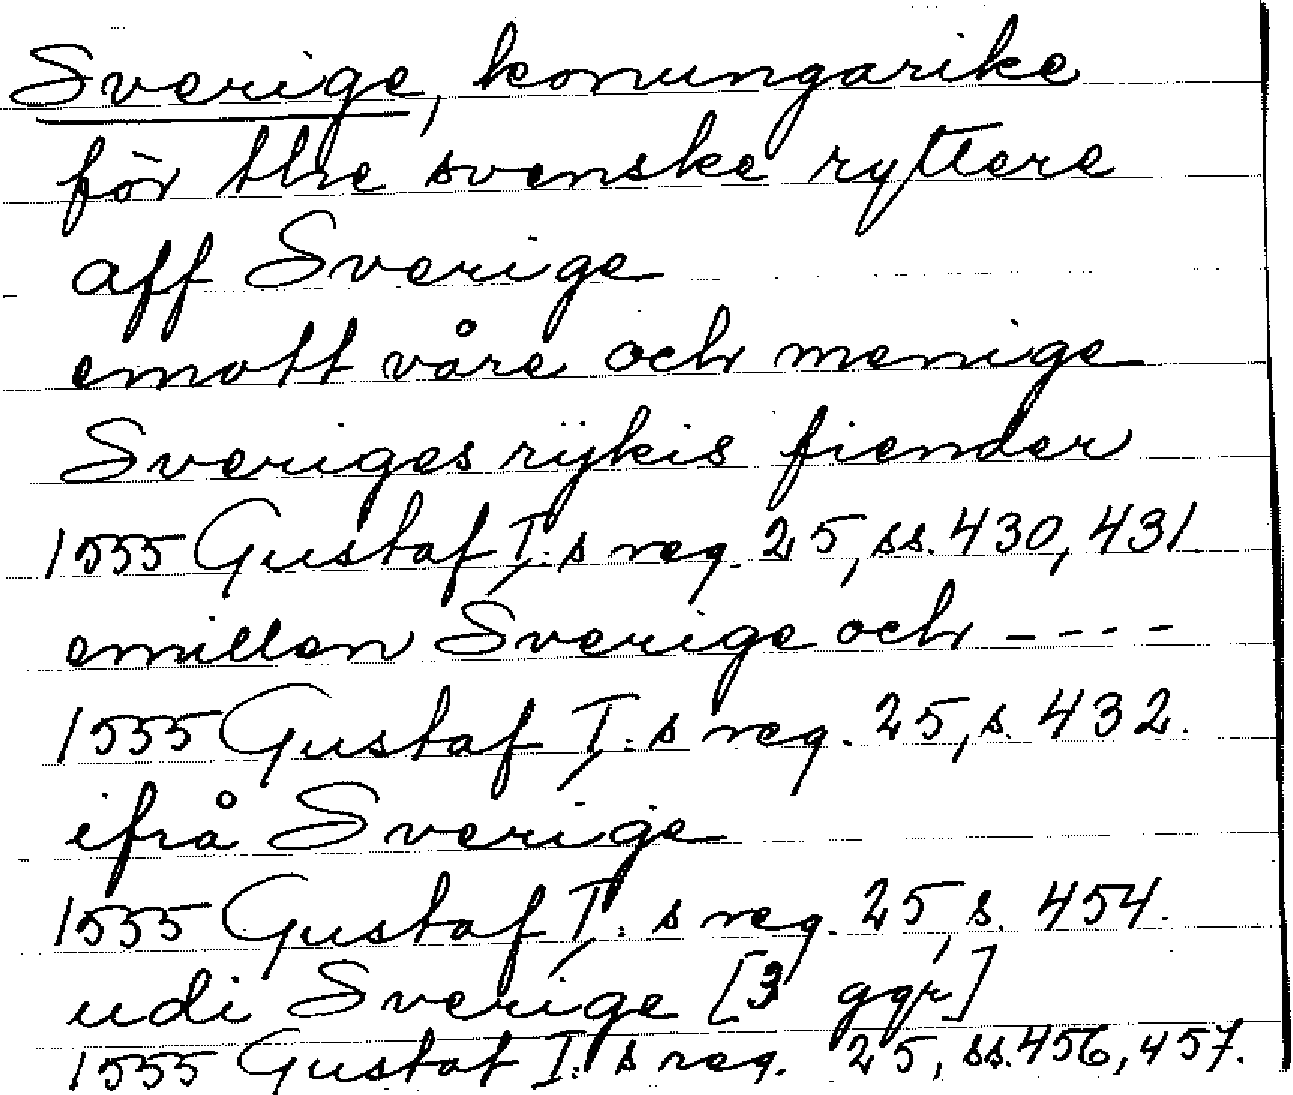 Sverige, konungarike
för the svenske ryttere
aff Sverige
emott våre och menige
Sveriges rijkis fiender
1555 Gustaf I:s reg. 25, ss. 430, 431.
emillen Sverige och - - - -
1555 Gustaf I:s reg. 25, s. 432.
ifrå Sverige
1555 Gustaf I:s reg. 25, s. 454.
udi Sverige [3 ggr]
1555 Gustaf I:s reg. 25, ss. 456, 457.